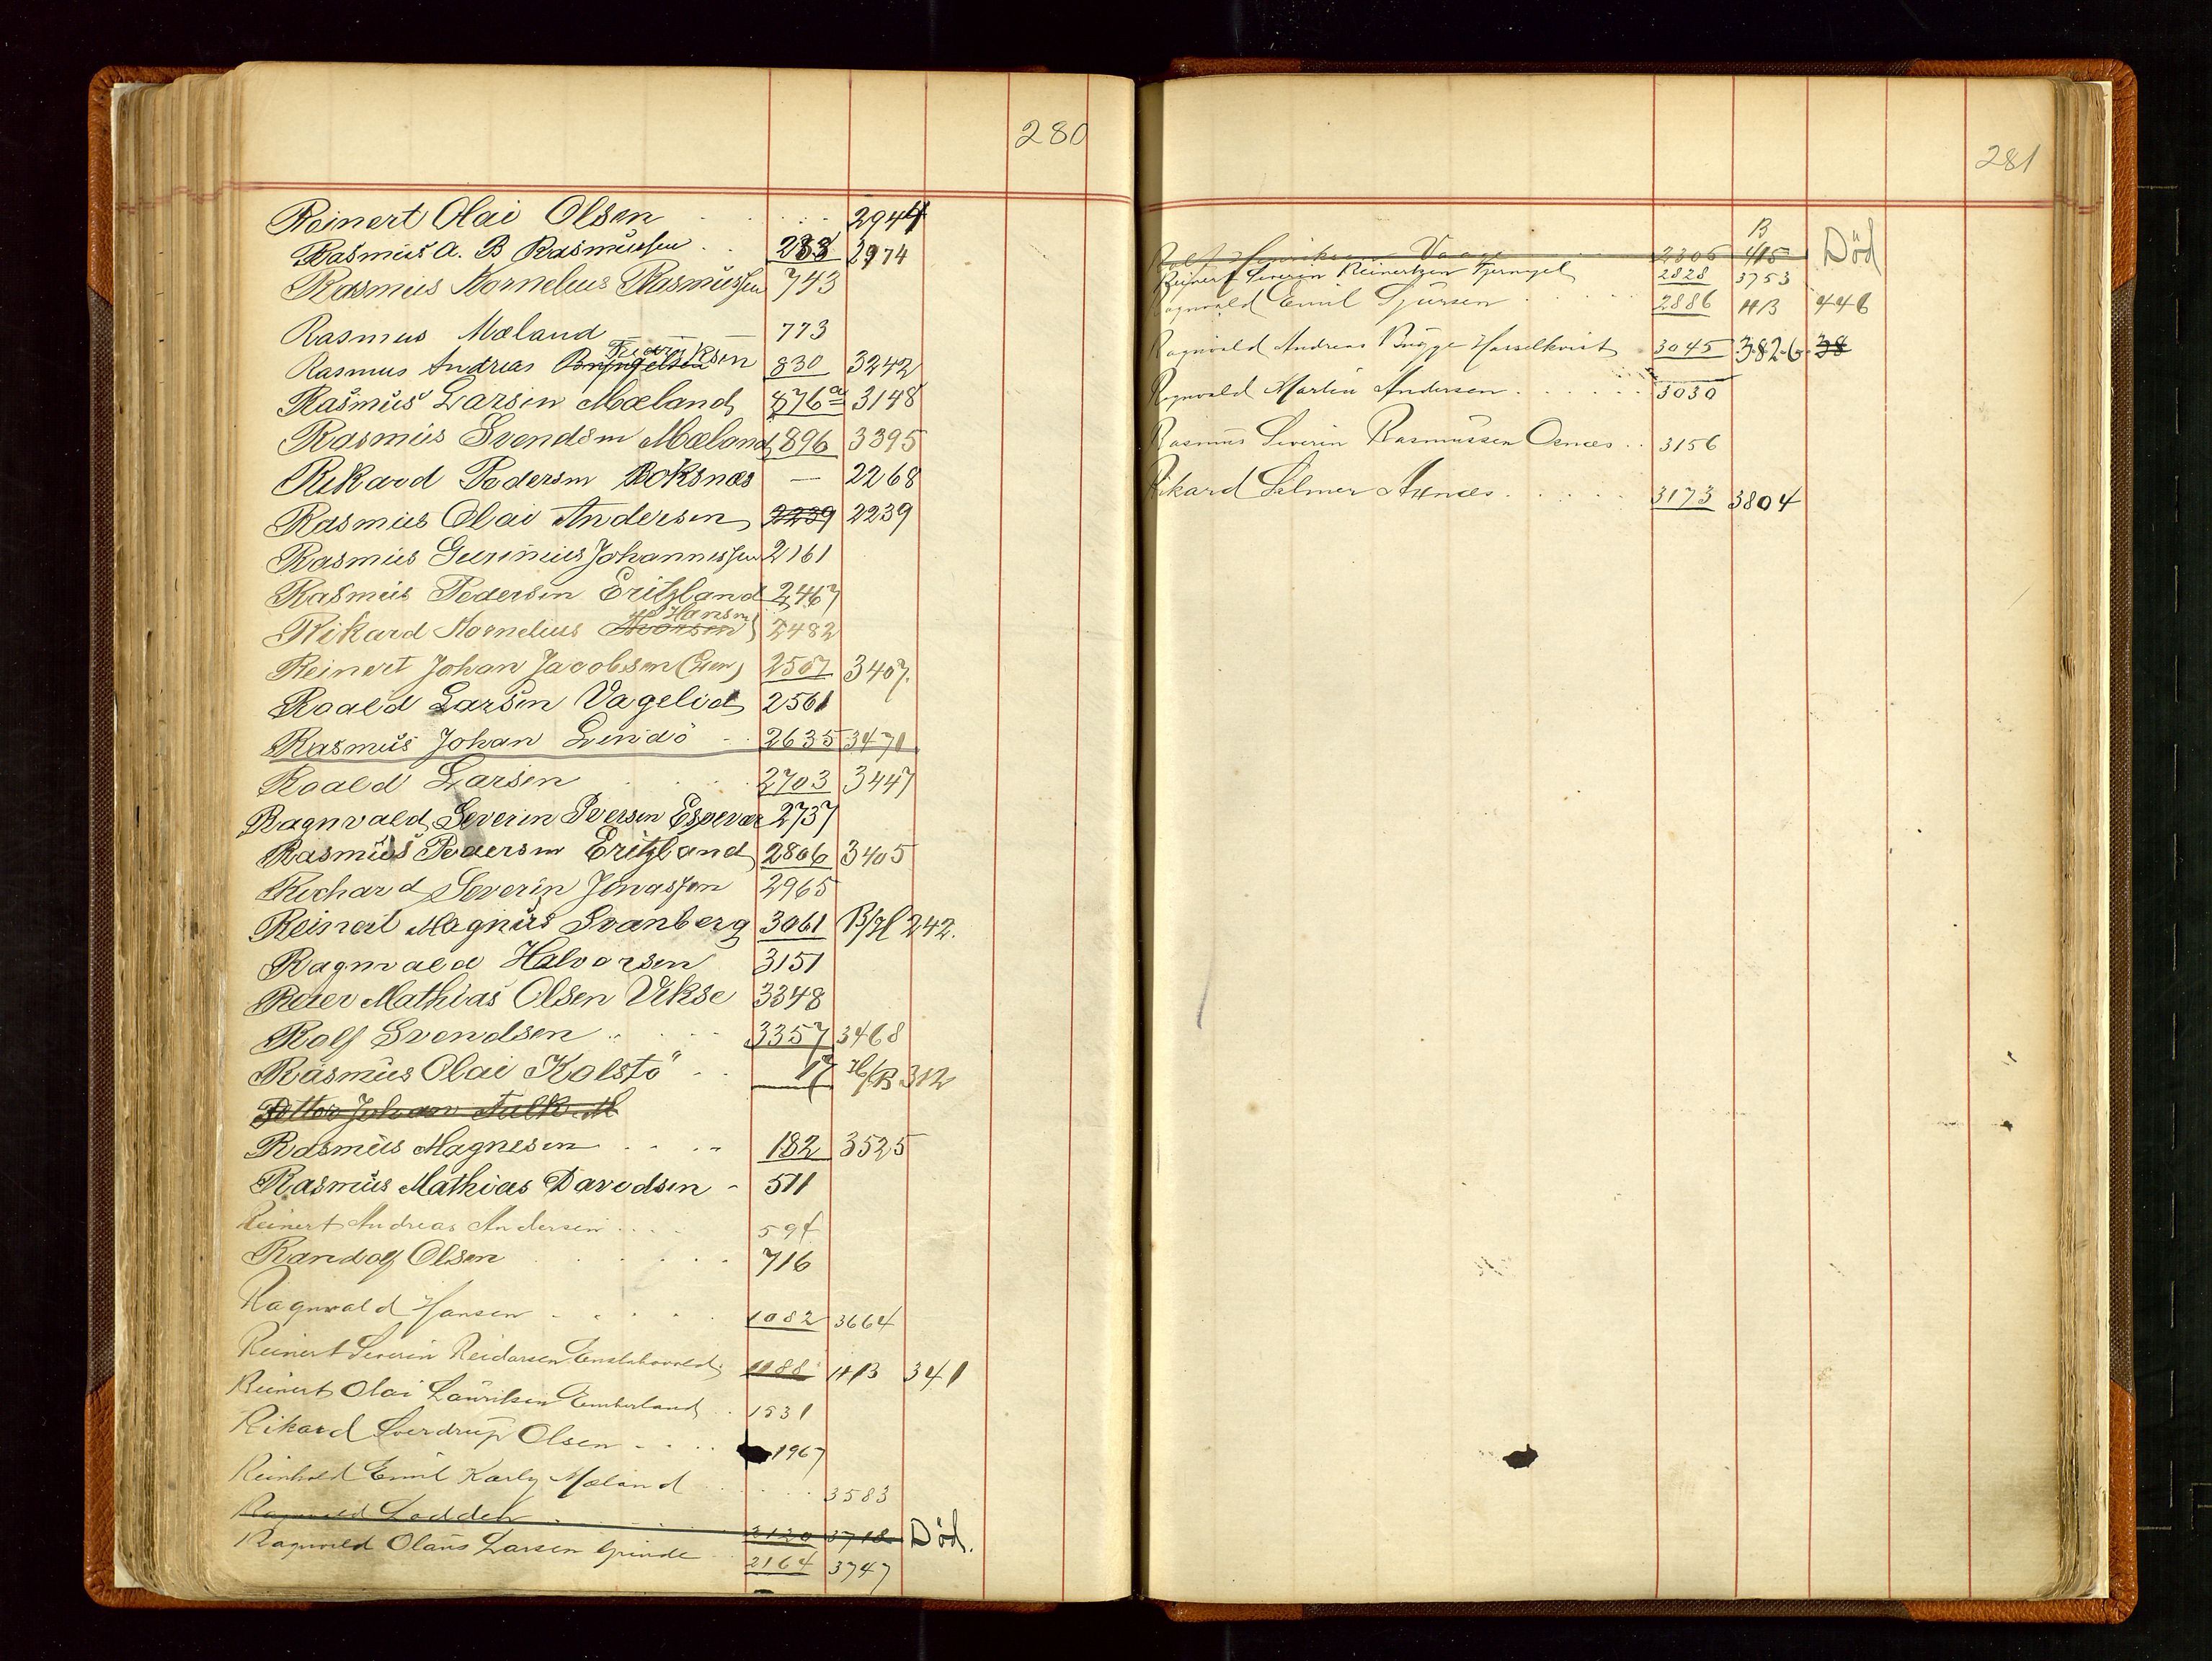 280
Reinert Olai Olsen 2944
Rasmus A. B Rasmussen 283 2974
Rasmus Kornelius Rasmussen 743
Rasmus Mæland 773
Rasmus Andreas Bryngelsen Fredriksen 830 3242
Rasmus Larsen Mæland 876a 3148
Rasmus Svendsen Mæland 896 3395
Rikard Pedersen Boksnæs — 2268
Rasmus Olai Andersen 2239 2239
Rasmus Johannessen 2161
Rasmus Pedersen Eritzland 2467
Rikard Kornelius Hansen 2482
Reinert Johan Jacobsen 2507 3407.
Roald Larsen Vagelid 2561
Rasmus Johan Lindö 2635 3471
Roald Larsen 2703 3447
Ragnvald Severin Iversen Espevær 2737
Rasmus Pedersen Eritzland 2806 3405
Richard Severin Jonassen 2965
Reinert Magnus Svanberg 3061 B/H 242.
Ragnvald Halvorsen 3151
Reier Mathias Olsen Vikse 3348
Rolf Svendsen 3357 3468
Rasmus Olai Kolstö 17 H/B 312
Petter Johan Falk
Rasmus Magnesen 182 3525
Rasmus Mathias Davidsen 511
Reinert Andreas Andersen 594
Randolf Olsen 716
Ragnvald Hansen 1082 3664
Reinert Severin Reidarsen 1188 HB 341
Reinert Olai Lauritsen Emberland 1531
Rikard Sverdrup Olsen 1967
Reinhold Emil Karly Mæland 3583
Ragnvald Lodden 2120 3718 Död.
Ragnvald Olaus Larsen Grinde 2164 3747
281
B
Rolf Henriksen Vaage 2306 415 Död
Reinert Severin Reinertsen Tjernagel 2828 3753
Ragnvald Emil Sjursen 2886 HB 446
Ragnvald Andreas Brügge Hasselkvist 3045 3826 38
Ragnvald Martin Andersen 3030
Rasmus Severin Rasmussen Osnes 3156
Rikard Selmer Axnæs 3173 3804